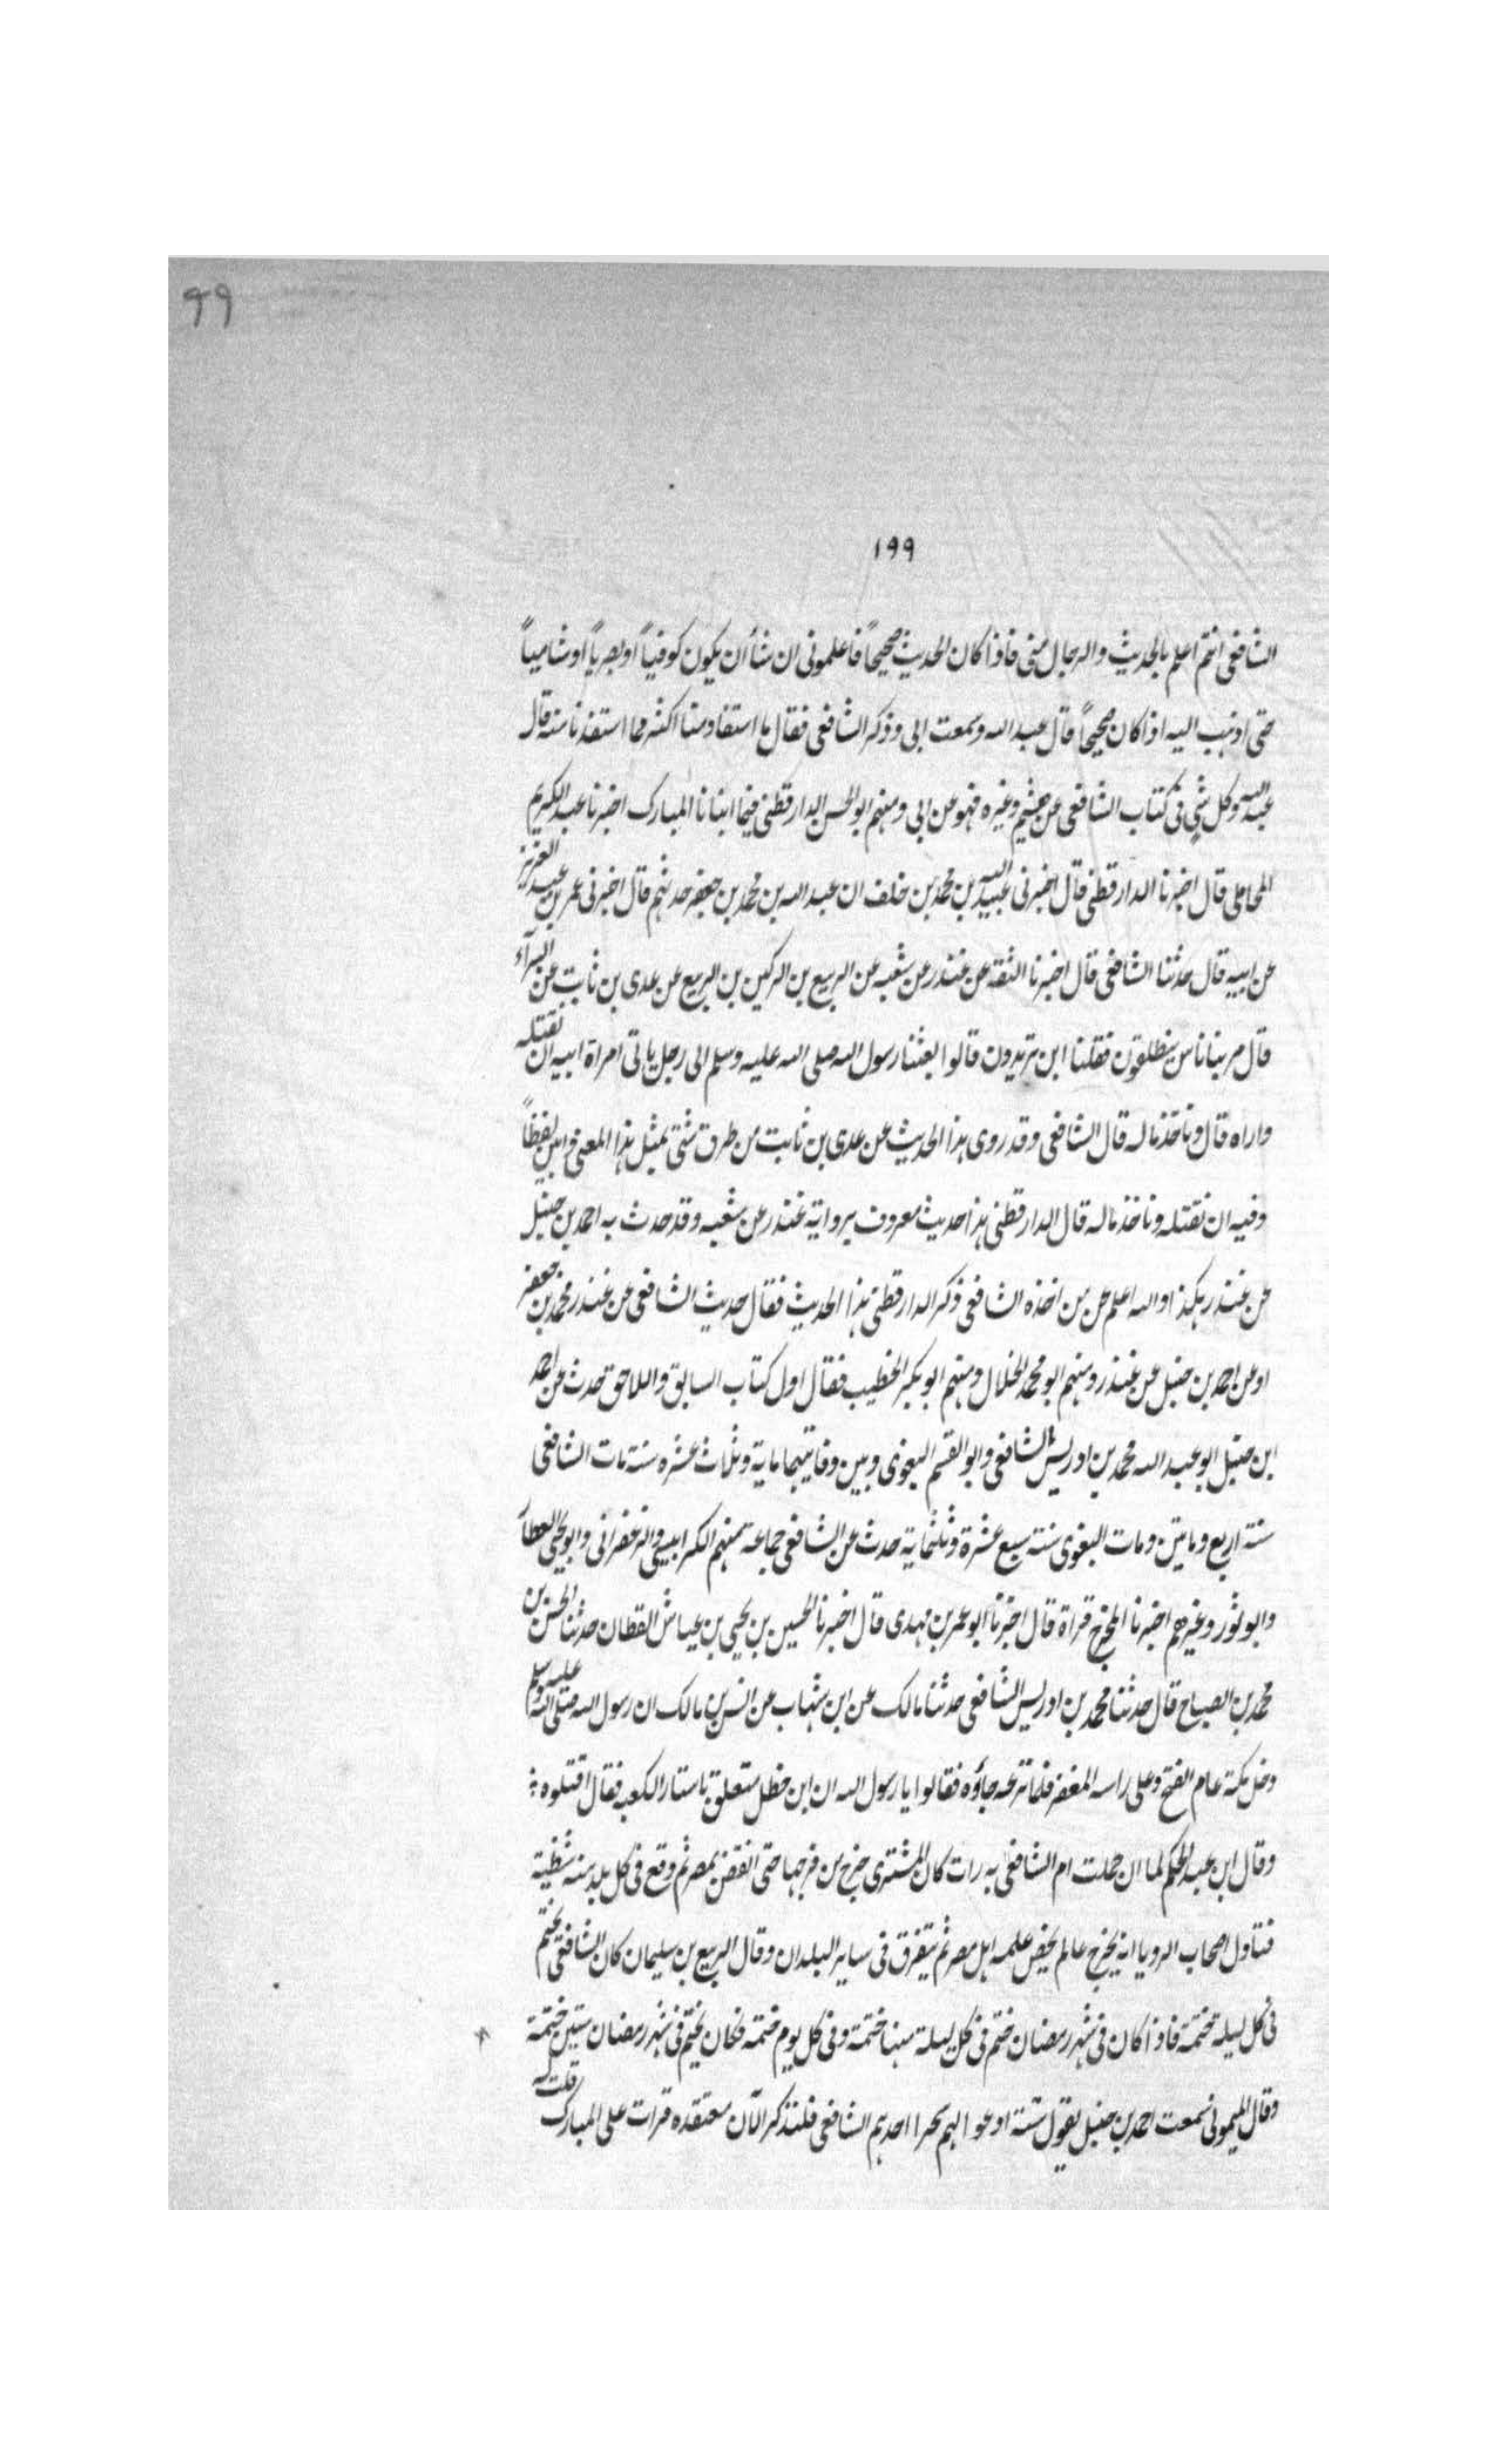 ٩٩
١٩٩
الشافعى انتم اعلم بالحديث والرجال منى فاذا كان الحديث صحيحاً فاعلمونى ان شأ ان يكون كوفياً او بصرياً او شامياً
حتى اذهب اليه اذا كان صحيحاً قال عبد الله وسمعت ابى وذكر الشافعى فقال ما استفاد منا اكثر مما استفدنا منه قال
عبد الله وكل شئ فى كتاب الشافعى عن هشيم وغيره فهو عن ابى ومنهم ابو الحسن الدارقطنى فيما انبانا المبارك اخبرنا عبد الكريم
المحاملى قال اخبرنا الدارقطنى قال اخبرنى عبيد الله بن محمد بن خلف ان عبد الله بن محمد بن جعفر حدثهم قال اخبرنى عمر بن عبد العزيز
عن ابيه قال حدثنا الشافعى قال اخبرنا الثقة عن غندر عن شعبه عن الربيع بن الركين بن الربيع عن عدى بن ثابت عن البرآء
قال مر بنا ناس ينطلقون فقلنا اين تريدون قالوا بعثنا رسول الله صلى الله عليه وسلم الى رجل ياتى امراة ابيه ان نقتله
واراه قال وناخذ ماله قال الشافعى وقد روى هذا الحديث عن عدى بن ثابت من طرق شتى بمثل هذا المعنى وابين لفظاً
وفيه ان نقتله وناخذ ماله قال الدارقطنى هذا حديث معروف برواية غندر عن شعبه وقد حدث به احمد بن حنبل
عن غندر هكذا والله اعلم عن من اخذه الشافعى ذكر الدارقطنى هذا الحديث فقال حديث الشافعى عن غندر محمد بن جعفر
او عن احمد بن حنبل عن غندر ومنهم ابو محمد الخلال ومنهم ابو بكر الخطيب فقال اول كتاب السابق واللاحق تحدث عن احمد
ابن حنبل ابو عبد الله محمد بن ادريس الشافعى وابو القسم البغوى وبين وفاتيهما ماية وثلاث عشره سنة مات الشافعى
سنة اربع وماتين ومات البغوى سنة سبع عشرة وثلثماية حدث عن الشافعى جماعه منهم الكرابيسى والزعفرانى وابو يحيى العطآ
وابو ثور وغيرهم اخبرنا المخرج قراة قال اخبرنا ابو عمر بن مهدى قال اخبرنا الحسين بن يحيى بن عياش القطان حدثنا الحسن بن
محمد بن الصباح قال حدثنا محمد بن ادريس الشافعى حدثنا مالك عن ابن شهاب عن انس بن مالك ان رسول الله صلى الله عليه وسلم
دخل مكة عام الفتح وعلى راسه المغفر فلما نزعه جاؤه فقالوا يا رسول الله ان ابن خطل متعلق باستار الكعبه فقال اقتلوه
وقال ابن عبد الحكم لما ان حملت ام الشافعى به رات كان المشترى خرج من فرجها حتى انقض بمصر ثم وقع فى كل بلد منه شظية
فتاول اصحاب الرويا انه يخرج عالم يخص علمه اهل مصر ثم يتفرق فى ساير البلدان وقال الربيع بن سليمان كان الشافعى يختم
فى كل ليله ختمة فاذا كان فى شهر رمضان ختم فى كل ليلة منها ختمة وفى كل يوم ختمه فكان يختم فى شهر رمضان ستين ختمة
وقال الميمونى سمعت احمد بن حنبل يقول ستة ادعوا لهم سحرا احدهم الشافعى فلنذكر الآن معتقده قرات على المبارك قلت له